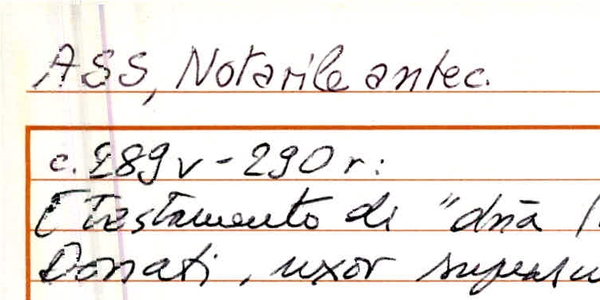 ASS, Notarile antec.
c. 289v - 290r:
[Testamento di "dnā
Donati, uxor